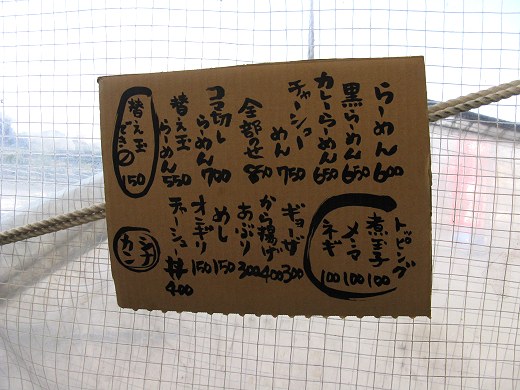 らーめん 600
黒らーめん 650
カレーらーめん 650
チャーシュー
めん 750
全部のせ 850
コマ切レ
らーめん 700
替え玉
らーめん 550
替え玉
150
トッピング
煮玉子 100
メンマ 100
ネギ 100
ギョーザ 300
から揚げ 400
あぶり 300
めし 150
オニギリ 150
チャーシュー
丼 400